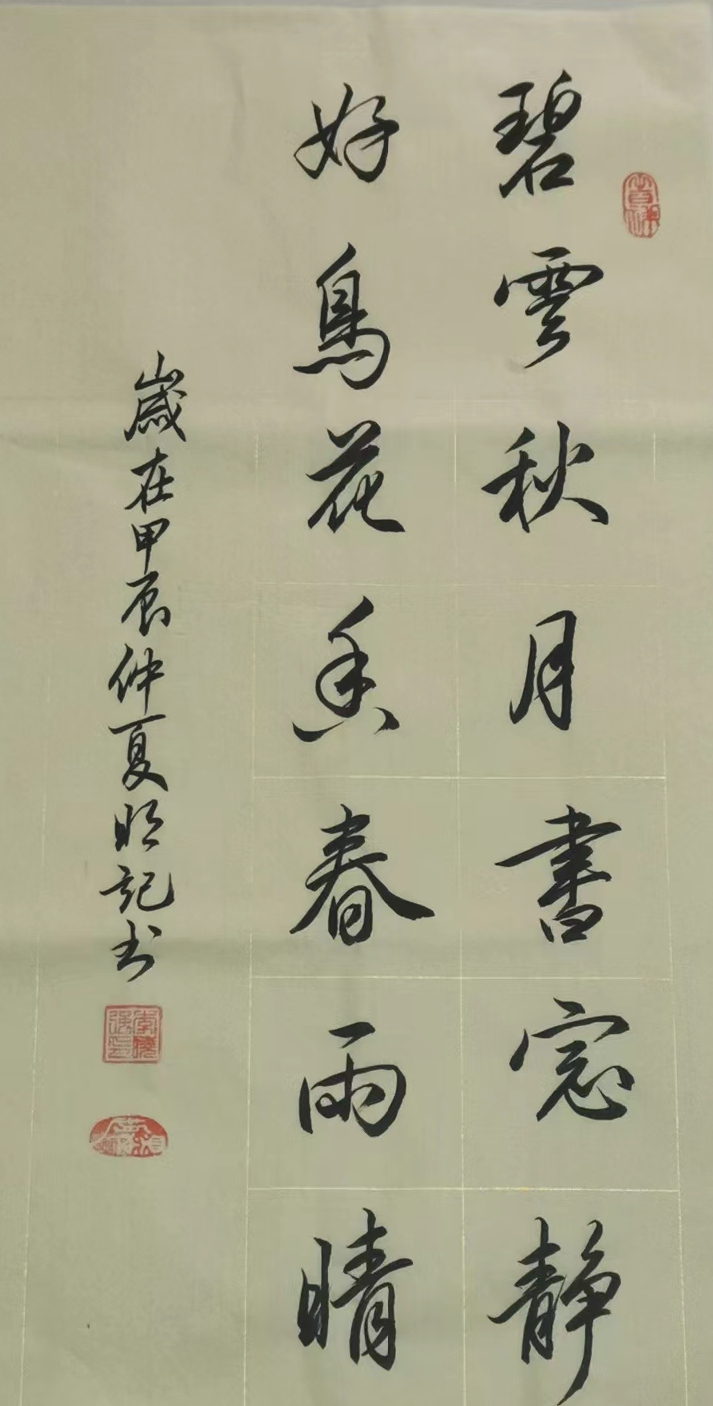 碧雲秋月書窓静
好鳥花香春雨晴
歲在甲辰仲夏 記书